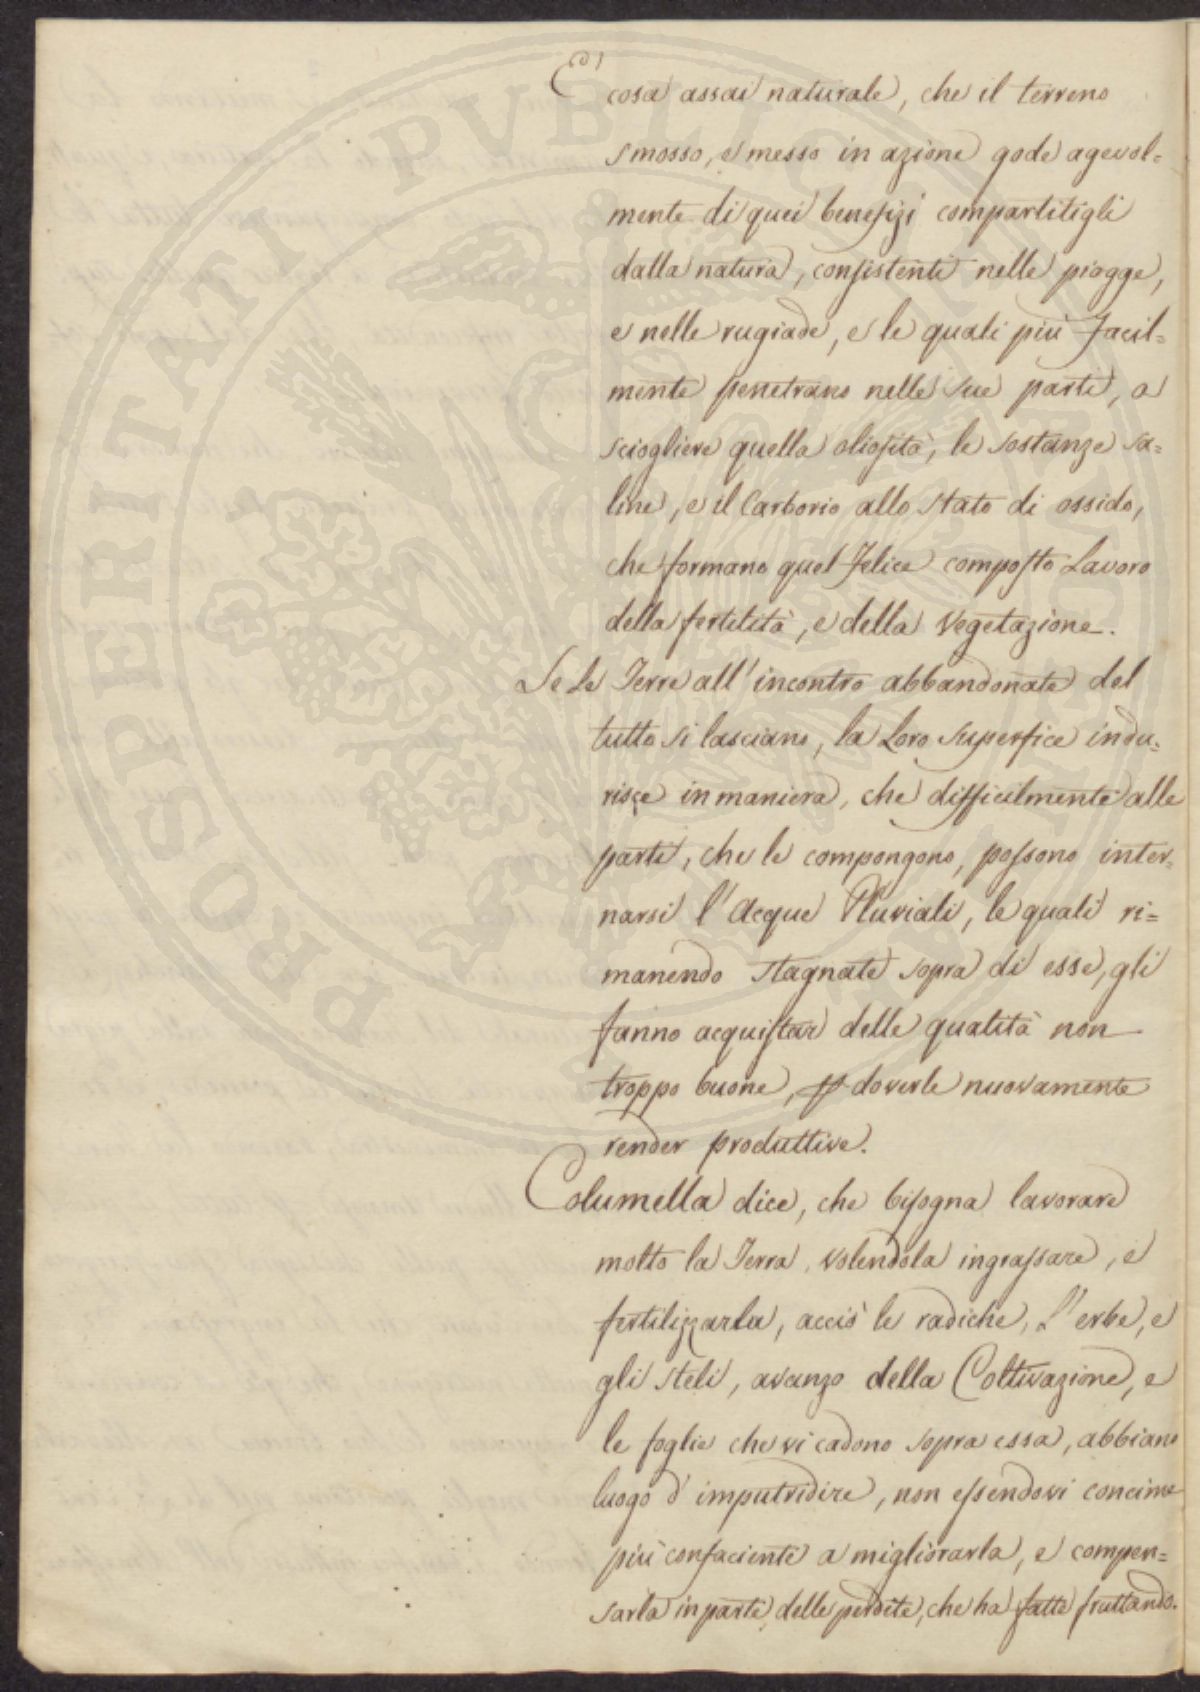 E' cosa assai naturale, che il terreno
smosso, e messo in azione gode agevol=
mente di quei benefizi compartitigli
dalla natura, consistenti nelle piogge,
e nelle rugiade, e le quali più facil=
mente penetrano nelle sue parti, a
sciogliere quella oliosità, le sostanze sa=
line, e il Carbonio allo stato di ossido,
che formano quel felice composto Lavoro
della fertilità, e della Vegetazione.
Se le Terre all'incontro abbandonate del
tutto si lasciano, la Loro superfice indu=
risce in maniera, che difficilmente alle
parti, che le compongono, possono inter=
narsi l'Acque Pluviali, le quali ri=
manendo stagnate sopra di esse, gli
fanno acquistar delle qualità non
troppo buone, p doverle nuovamente
render produttive.
Columella dice, che bisogna lavorare
molto la Terra, volendola ingrassare, e
fertilizzarla, acciò le radiche, l'erbe, e
gli steli, avanzo della Coltivazione, e
le foglie che vi cadono sopra essa, abbiano
luogo d'imputridire, non essendovi concime
più confaciente a migliorarla, e compen=
sarla in parte, delle perdite, che ha fatte fruttando.
PROSPERITATI PUBLICAE